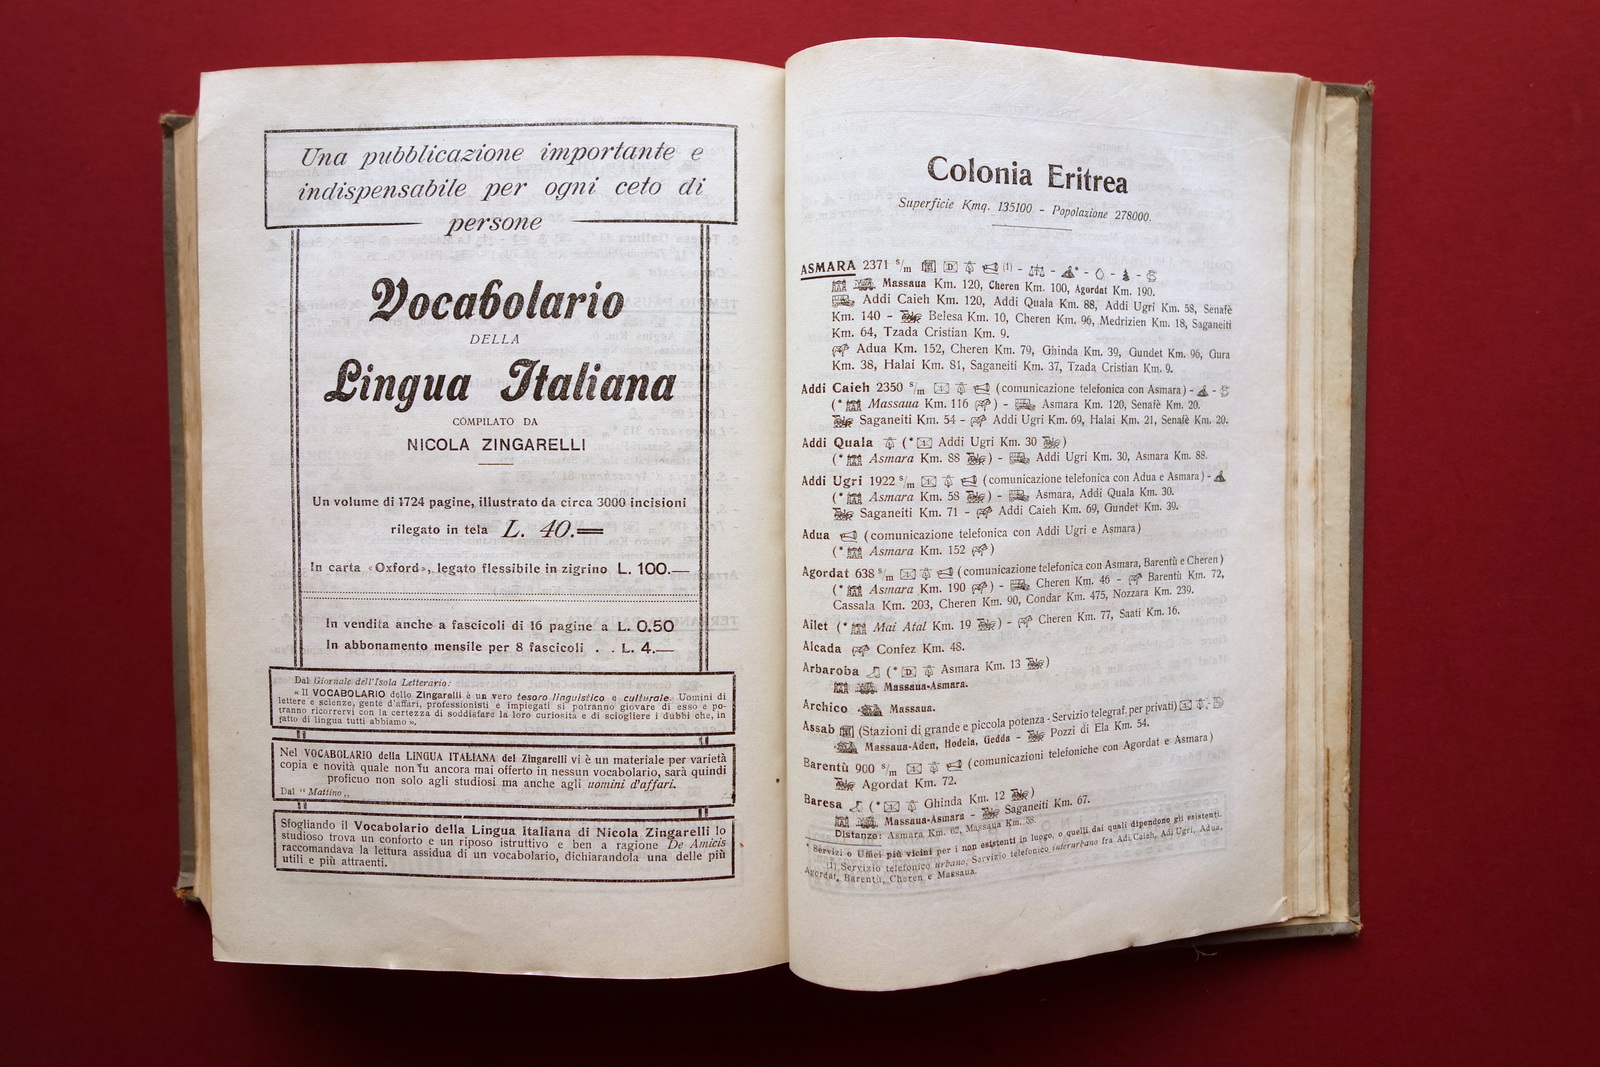 Una pubblicazione importante e
indispensabile per ogni ceto di
persone
Vocabolario
DELLA
Lingua Italiana
COMPILATO DA
NICOLA ZINGARELLI
Un volume di 1724 pagine, illustrato da circa 3000 incisioni
rilegato in tela L. 40.=
In carta «Oxford», legato flessibile in zigrino L. 100.—
In vendita anche a fascicoli di 16 pagine a L. 0.50
In abbonamento mensile per 8 fascicoli . . L. 4.—
Dal Giornale dell'Isola Letterario:
« Il VOCABOLARIO dello Zingarelli è un vero tesoro linguistico e culturale. Uomini di
lettere e scienze, gente d'affari, professionisti e impiegati si potranno giovare di esso e po-
tranno ricorrervi con la certezza di soddisfare la loro curiosità e di sciogliere i dubbi che, in
fatto di lingua tutti abbiamo ».
Nel VOCABOLARIO della LINGUA ITALIANA del Zingarelli vi è un materiale per varietà
copia e novità quale non fu ancora mai offerto in nessun vocabolario, sarà quindi
proficuo non solo agli studiosi ma anche agli uomini d'affari.
Dal " Mattino „
Sfogliando il Vocabolario della Lingua Italiana di Nicola Zingarelli lo
studioso trova un conforto e un riposo istruttivo e ben a ragione De Amicis
raccomandava la lettura assidua di un vocabolario, dichiarandola una delle più
utili e più attraenti.
Colonia Eritrea
Superficie Kmq. 135100 - Popolazione 278000.
ASMARA 2371 s/m (1) - - - - -
Massaua Km. 120, Cheren Km. 100, Agordat Km. 190.
Addi Caieh Km. 120, Addi Quala Km. 88, Addi Ugri Km. 58, Senafè
Km. 140 - Belesa Km. 10, Cheren Km. 96, Medrizien Km. 18, Saganeiti
Km. 64, Tzada Cristian Km. 9.
Adua Km. 152, Cheren Km. 79, Ghinda Km. 39, Gundet Km. 96, Gura
Km. 38, Halai Km. 81, Saganeiti Km. 37, Tzada Cristian Km. 9.
Addi Caieh 2350 s/m (comunicazione telefonica con Asmara) - -
(* Massaua Km. 116 ) - Asmara Km. 120, Senafè Km. 20.
Saganeiti Km. 54 - Addi Ugri Km. 69, Halai Km. 21, Senafè Km. 20.
Addi Quala (* Addi Ugri Km. 30 )
(* Asmara Km. 88 ) - Addi Ugri Km. 30, Asmara Km. 88.
Addi Ugri 1922 s/m (comunicazione telefonica con Adua e Asmara) -
(* Asmara Km. 58 ) - Asmara, Addi Quala Km. 30.
Saganeiti Km. 71 - Addi Caieh Km. 69, Gundet Km. 39.
Adua (comunicazione telefonica con Addi Ugri e Asmara)
(* Asmara Km. 152 )
Agordat 638 s/m (comunicazione telefonica con Asmara, Barentù e Cheren)
(* Asmara Km. 190 ) - Cheren Km. 46 - Barentù Km. 72,
Cassala Km. 203, Cheren Km. 90, Condar Km. 475, Nozzara Km. 239.
Ailet (* Mai Atal Km. 19 ) - Cheren Km. 77, Saati Km. 16.
Alcada Confez Km. 48.
Arbaroba (* Asmara Km. 13 )
Massaua-Asmara.
Archico Massaua.
Assab (Stazioni di grande e piccola potenza - Servizio telegraf. per privati) -
Massaua-Aden, Hodeia, Gedda - Pozzi di Ela Km. 54.
Barentù 900 s/m (comunicazioni telefoniche con Agordat e Asmara)
Agordat Km. 72.
Baresa (* Ghinda Km. 12 )
Massaua-Asmara - Saganeiti Km. 67.
Distanze: Asmara Km. 62, Massaua Km. 58.
* Servizi o Uffici più vicini per i non esistenti in luogo, o quelli dai quali dipendono gli esistenti.
(1) Servizio telefonico urbano, Servizio telefonico interurbano fra Adi Caieh, Adi Ugri, Adua,
Agordat, Barentù, Cheren e Massaua.